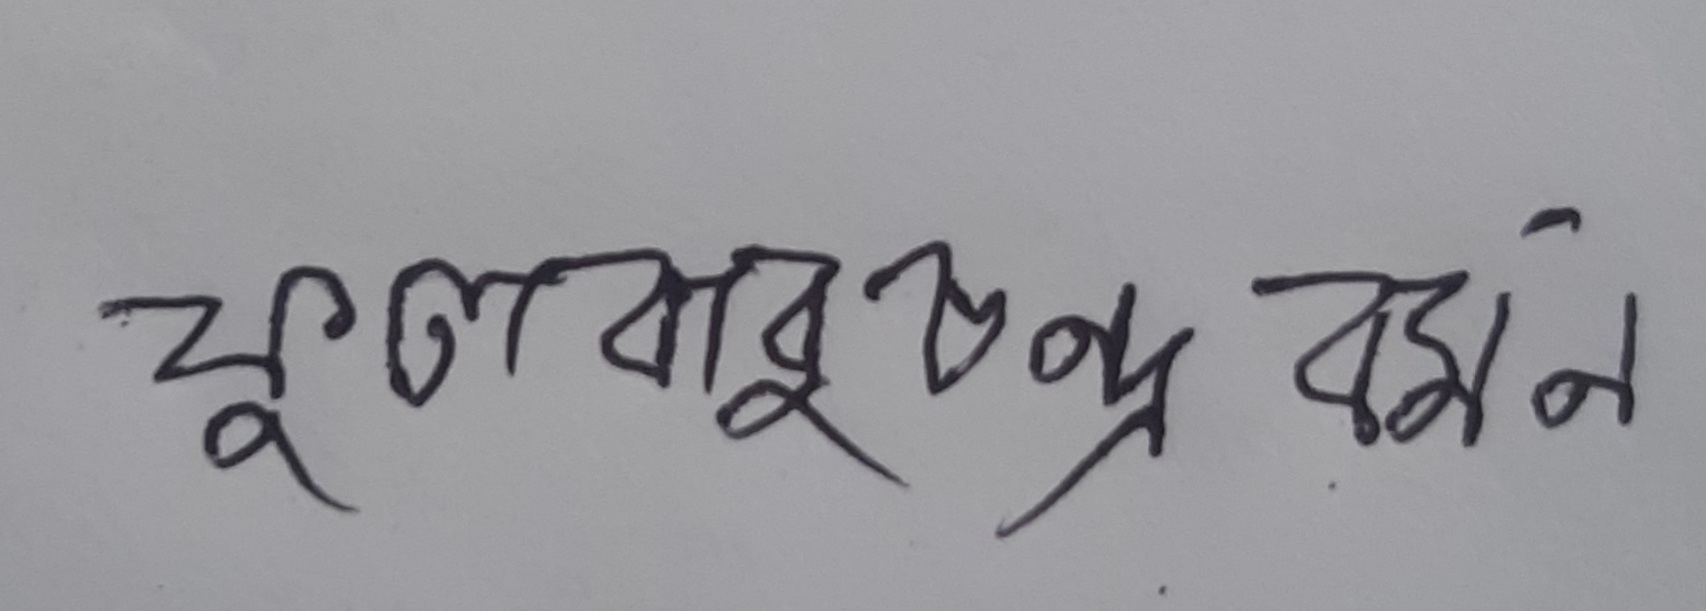 ফুলবাবু চন্দ্র বর্মন